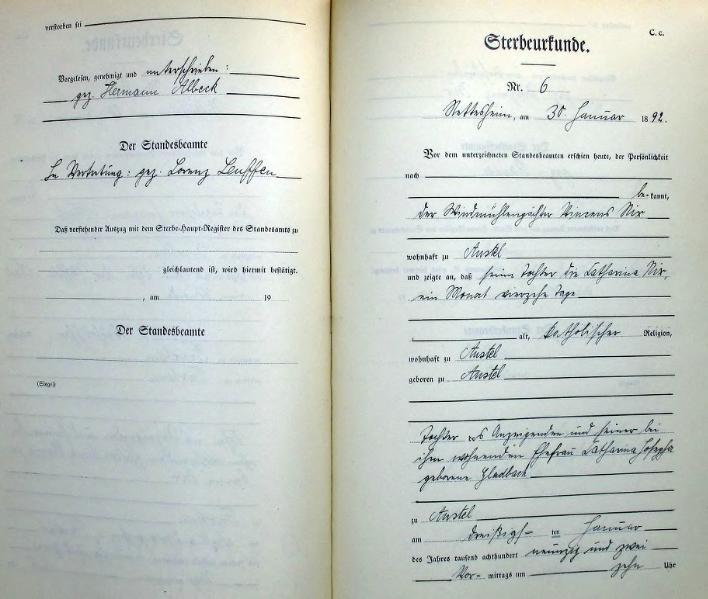 verstorben sei
Vorgelesen, genehmigt und unterschrieben:
gez. Hermann Albeck
Der Standesbeamte
In Vertretung: gez. Lorenz
Daß vorstehender Auszug mit dem Sterbe-Haupt-Register des Standesamts zu
gleichlautend ist, wird hiermit bestätigt.
, am 19
Der Standesbeamte
(Siegel)
C. c.
Sterbeurkunde.
Nr. 6
Nettesheim, am 30 Januar 1892.
Vor dem unterzeichneten Standesbeamten erschien heute, der Persönlichkeit
nach
bekannt,
der Windmühlenpächter Vincens Nix
wohnhaft zu Anstel
und zeigte an, daß seine Tochter die Catharina Nix,
ein Monat vierzehn Tage
alt, katholischer Religion,
wohnhaft zu Anstel
geboren zu Anstel
Tochter des Anzeigenden und seiner bei
ihm wohnenden Ehefrau Catharina Josepha
geborene Gladbach
zu Anstel
am dreißigsten Januar
des Jahres tausend achthundert neunzig und zwei
Vor- mittags um zehn Uhr